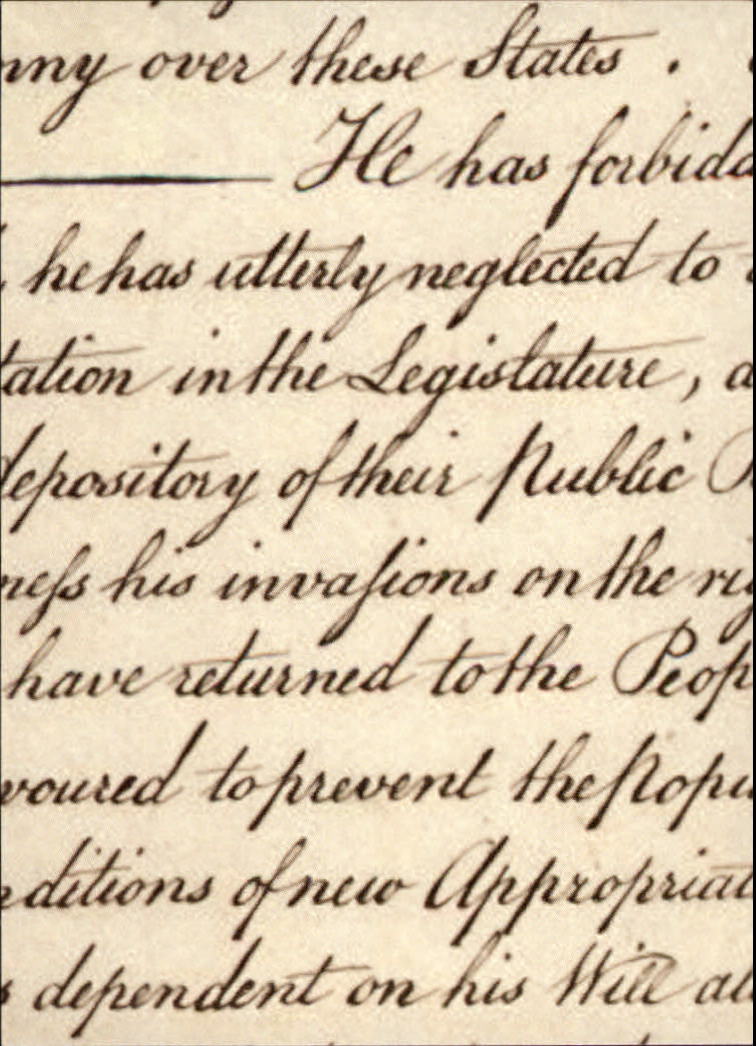 nny over these States .
He has forbidd
he has utterly neglected to
tation in the Legislature, a
depository of their public
neſs his invaſions on the rig
have returned to the Peop
voured to prevent the popu
ditions of new Appropriat
dependent on his Will al